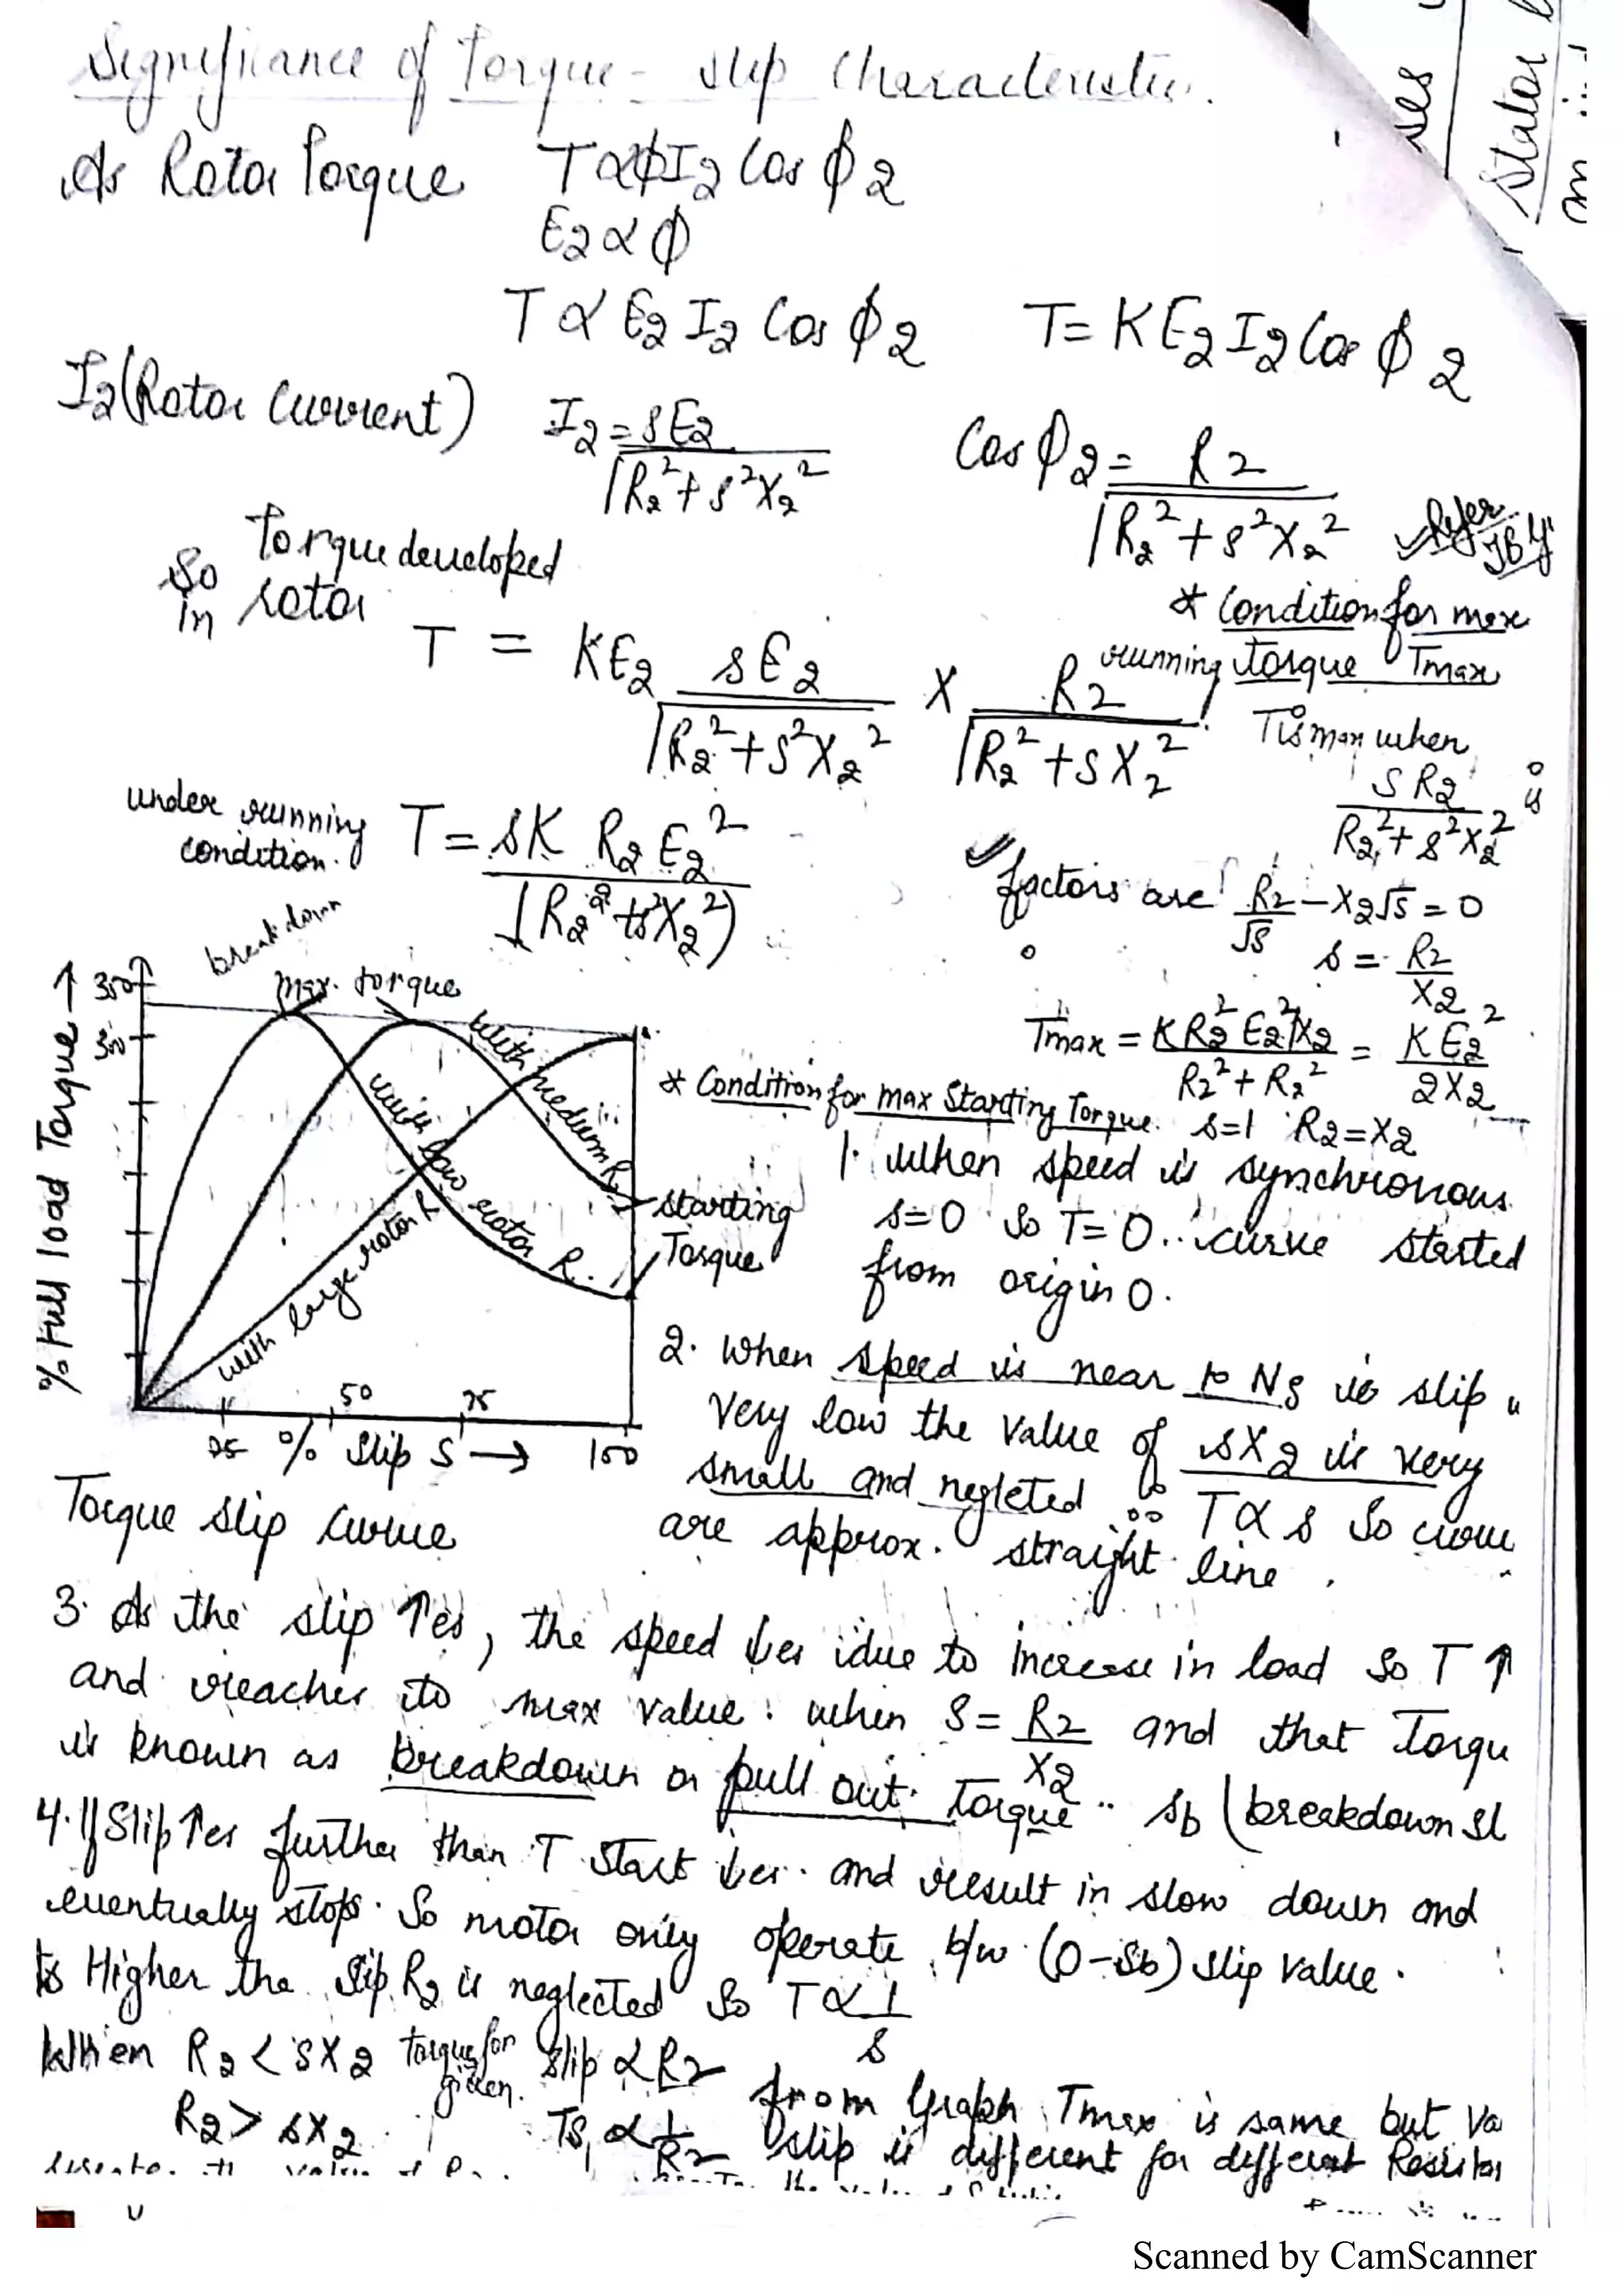 Significance of Torque - slip Characteristics.
As Rotor Torque T ∝ ϕI2 Cos ϕ2
E2 ∝ ϕ
T ∝ E2 I2 Cos ϕ2 T = K E2 I2 Cos ϕ2
I2 (Rotor Current) I2 = sE2 / √R2² + s²X2² Cos ϕ2 = R2 / √R2² + s²X2²
✓ Refer
So Torque developed
in rotor
T = KE2 sE2 / √R2² + s²X2² × R2 / √R2² + sX2²
* Condition for max
running torque Tmax
T is max when
sR2 / R2² + s²X2² is
under running
condition.
T = sK R2 E2² / (R2² + s²X2²)
✓ factors are R2/√s − X2√s = 0
s = R2/X2
Tmax = KR2² E2²/X2 / R2² + R2² = KE2² / 2X2
breakdown
max. torque
350
300
% Full load Torque →
with medium R.
with low rotor R.
with large rotor R
Starting
Torque
25 50 75 100
% Slip S →
Torque slip curve
* Condition for max Starting Torque. s=1 R2=X2
1. When speed is synchronous
s=0 So T=0 ∴ curve started
from origin 0.
2. When speed is near to Ns ie slip
very low the value of sX2 is very
small and neglcted ∴ T ∝ s So curve
are approx. straight line.
3. As the slip ↑es, the speed ↓es due to increase in load So T ↑
and reaches to max value when S = R2/X2 and that Torqu
is known as breakdown or pull out Torque sb (breakdown sl
4. If Slip ↑es further than T start ↓es and result in slow down and
eventually stops. So motor only operate b/w (0-Sb) slip value.
Higher the slip R2 is neglected So T ∝ 1/s
When R2 < sX2 torque for given. slip ∝ R2
R2 > sX2 Ts ∝ 1/R2
from Graph Tmax is same but Va
slip is different for different Resistan
ses
Stator
Scanned by CamScanner